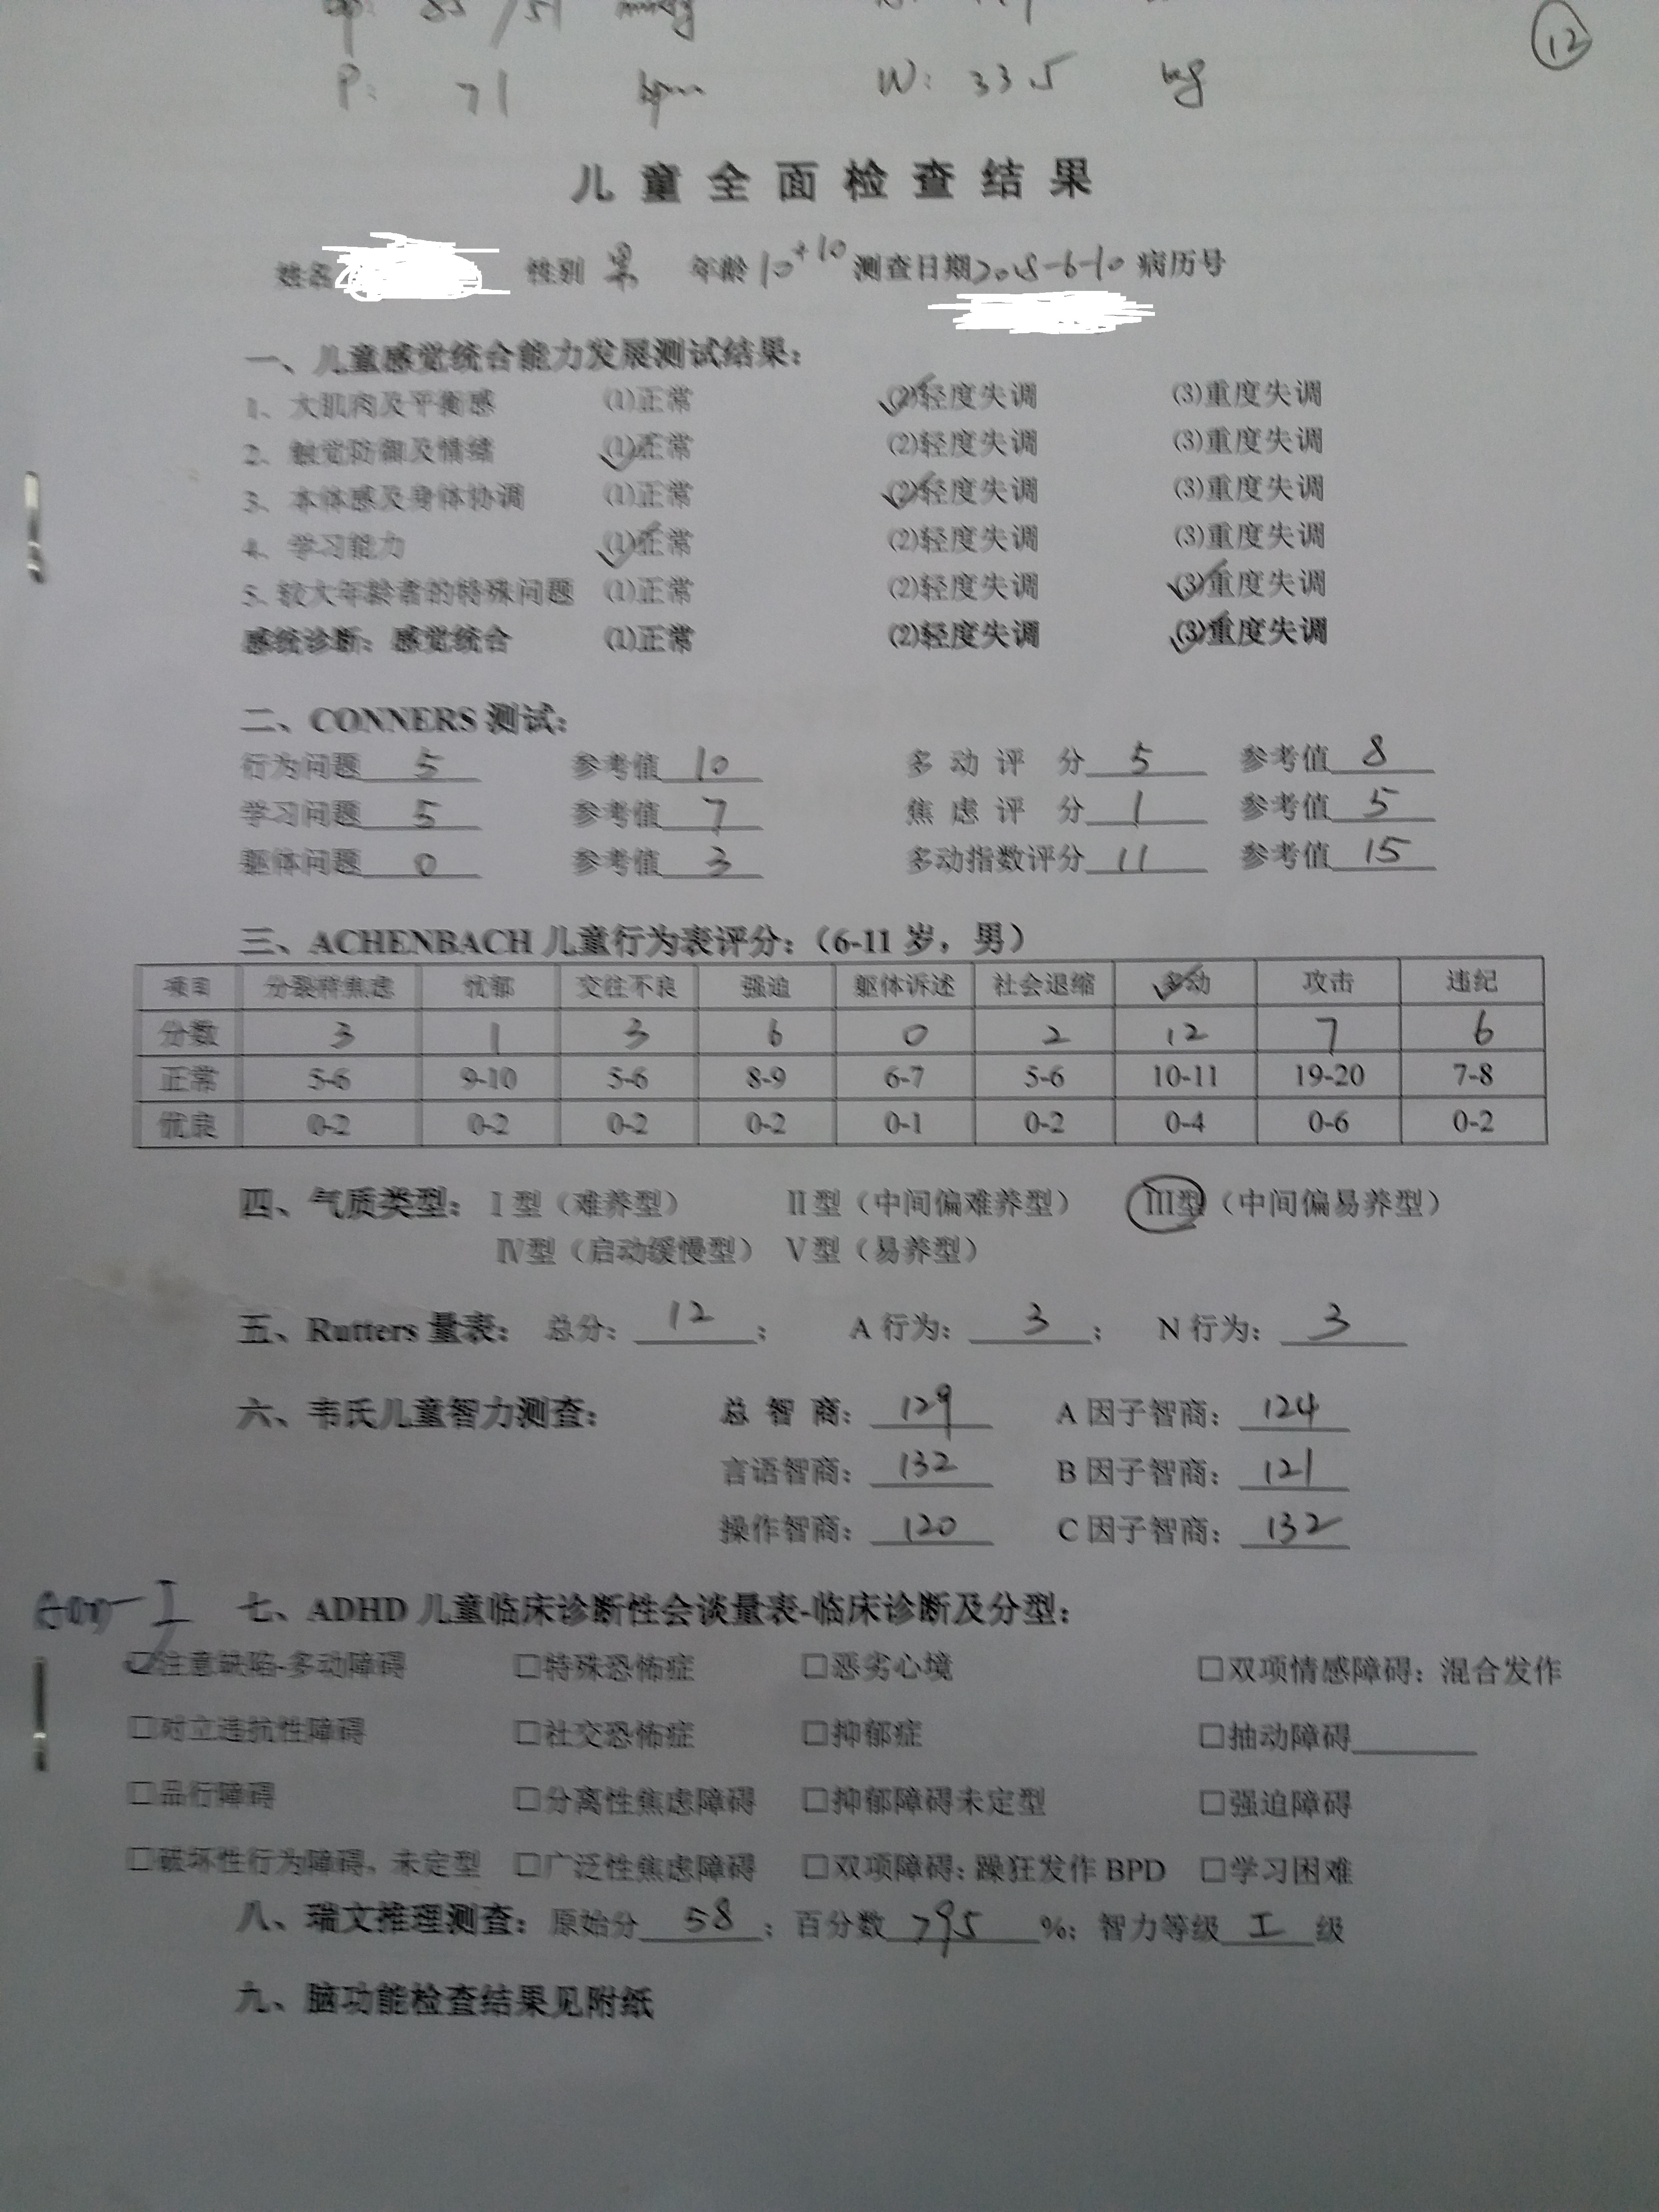 P: 71 bpm W: 33.5 kg
12
儿童全面检查结果
姓名 性别 男 年龄 10+10 测查日期 2018-6-10 病历号
一、儿童感觉统合能力发展测试结果：
1、大肌肉及平衡感 (1)正常 (2)轻度失调 (3)重度失调
2、触觉防御及情绪 (1)正常 (2)轻度失调 (3)重度失调
3、本体感及身体协调 (1)正常 (2)轻度失调 (3)重度失调
4、学习能力 (1)正常 (2)轻度失调 (3)重度失调
5、较大年龄者的特殊问题 (1)正常 (2)轻度失调 (3)重度失调
感统诊断：感觉统合 (1)正常 (2)轻度失调 (3)重度失调
二、CONNERS 测试：
行为问题 5 参考值 10 多动评分 5 参考值 8
学习问题 5 参考值 7 焦虑评分 1 参考值 5
躯体问题 0 参考值 3 多动指数评分 11 参考值 15
三、ACHENBACH 儿童行为表评分：（6-11 岁，男）
项目 分裂样焦虑 忧郁 交往不良 强迫 躯体诉述 社会退缩 多动 攻击 违纪
分数 3 1 3 6 0 2 12 7 6
正常 5-6 9-10 5-6 8-9 6-7 5-6 10-11 19-20 7-8
优良 0-2 0-2 0-2 0-2 0-1 0-2 0-4 0-6 0-2
四、气质类型：Ⅰ型（难养型） Ⅱ型（中间偏难养型） Ⅲ型（中间偏易养型）
Ⅳ型（启动缓慢型） Ⅴ型（易养型）
五、Rutters 量表：总分：12； A 行为：3； N 行为：3
六、韦氏儿童智力测查： 总智商：129 A 因子智商：124
言语智商：132 B 因子智商：121
操作智商：120 C 因子智商：132
七、ADHD 儿童临床诊断性会谈量表-临床诊断及分型：
☑注意缺陷-多动障碍 □特殊恐怖症 □恶劣心境 □双项情感障碍：混合发作
□对立违抗性障碍 □社交恐怖症 □抑郁症 □抽动障碍
□品行障碍 □分离性焦虑障碍 □抑郁障碍未定型 □强迫障碍
□破坏性行为障碍，未定型 □广泛性焦虑障碍 □双项障碍：躁狂发作 BPD □学习困难
八、瑞文推理测查：原始分 58；百分数 >95 %；智力等级 I 级
九、脑功能检查结果见附纸